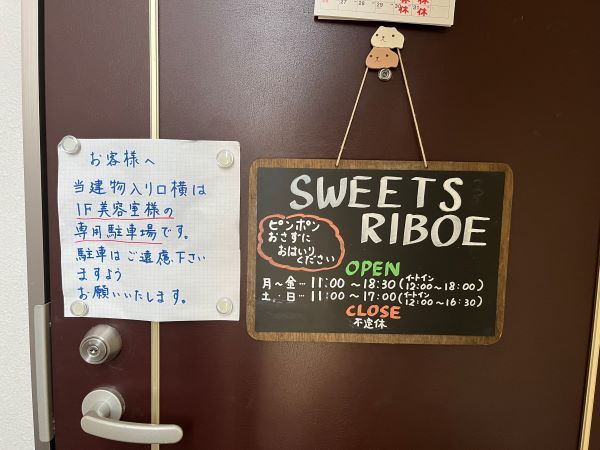 お客様へ
当建物入り口横は
1F美容室様の
専用駐車場です。
駐車はご遠慮下さい
ますよう
お願いいたします。
SWEETS
RIBOE
ピンポン
おさずに
おはいり
ください
OPEN
月～金…11:00～18:30(イートイン 12:00～18:00)
土・日…11:00～17:00(イートイン 12:00～16:30)
CLOSE
不定休